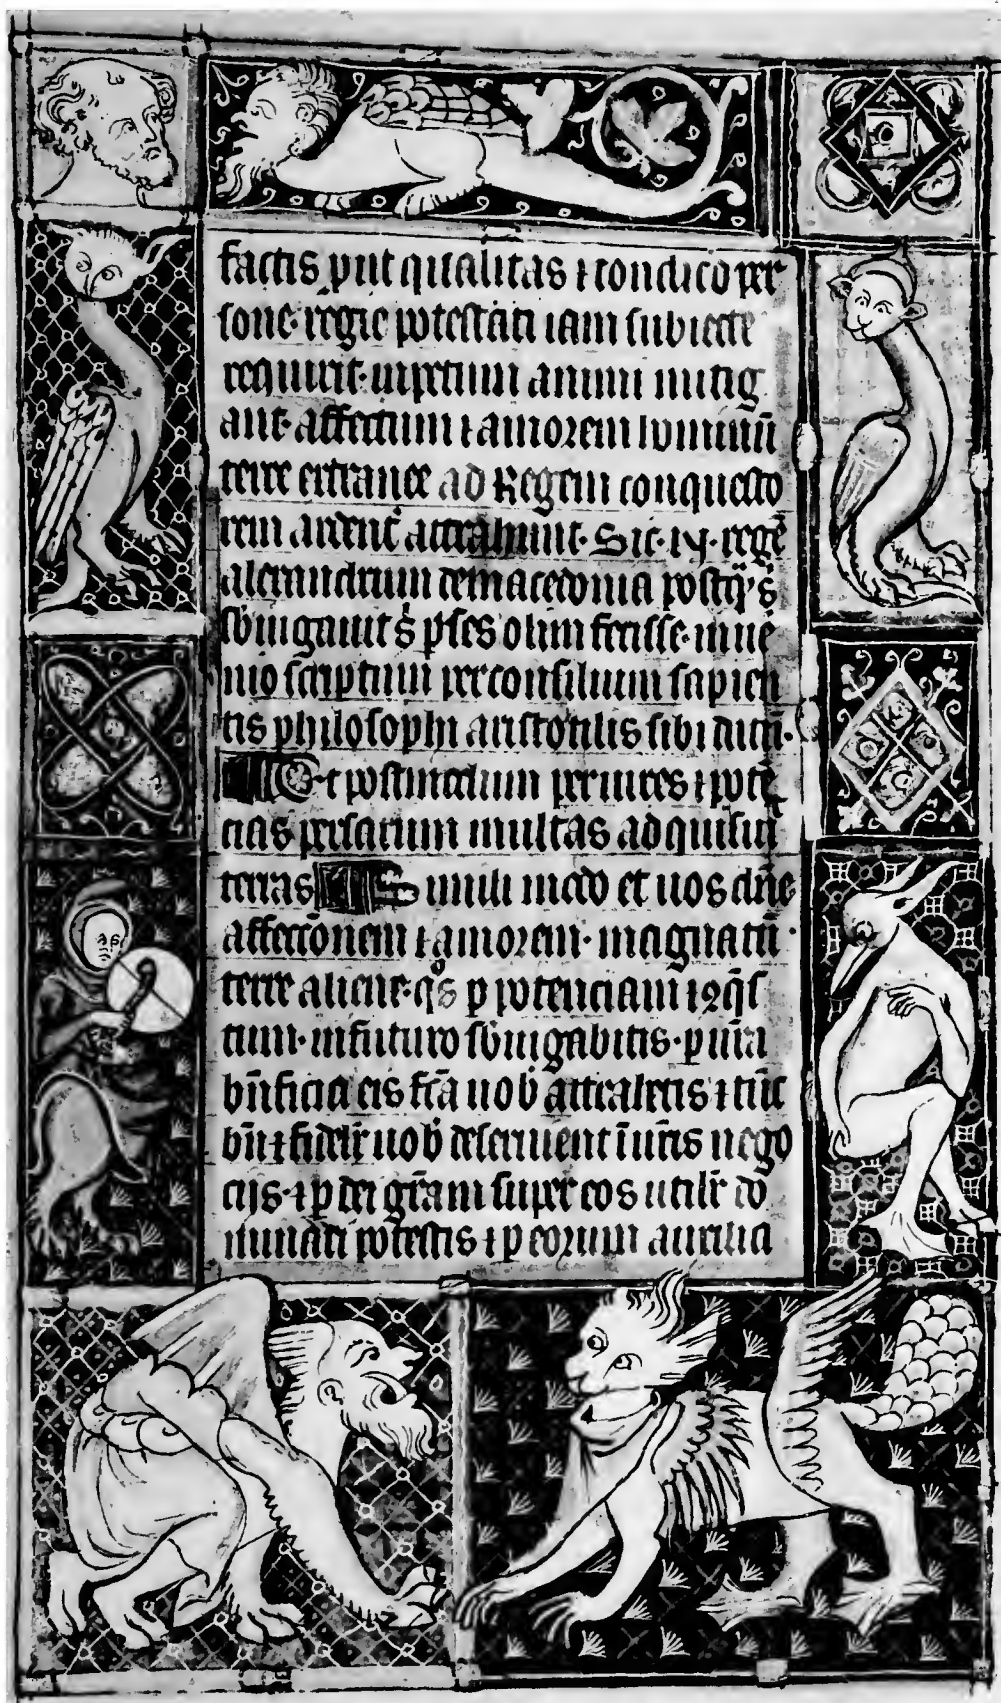 factis put qualitas ⁊ condicio per
sone regie potestati iam subiecte
requirit· animi mitig
ant· affectum ⁊ amorem hominū
terre extranee ad Regem conquesto
rem ardent̄ attrahunt· Sic· regē
alexandrum de macedonia postq̄
s̄ p̄ses olim fecisse· inue
nio scriptum per consilium sapien
tis philosophi aristotilis sibi dictū·
Et postmodum per uires ⁊ potē
cias persarum multas adquisiuit
terras Simili modo et uos dn̄e
affecc̄onem ⁊ amorem· magnatū·
terre aliene· qͦs p potenciam ⁊ ꝯq̄s
tum· infuturo sb̄iugabitis· p ur̄a
bn̄ficia eis fc̄a uob̄ attrahetis ⁊ tūc
bn̄ ⁊ fidelr̄ uob̄ deseruient ī ur̄is nego
cijs· ⁊ p dei gr̄am super eos utilr̄ do
minari potestis ⁊ p eorum auxilia